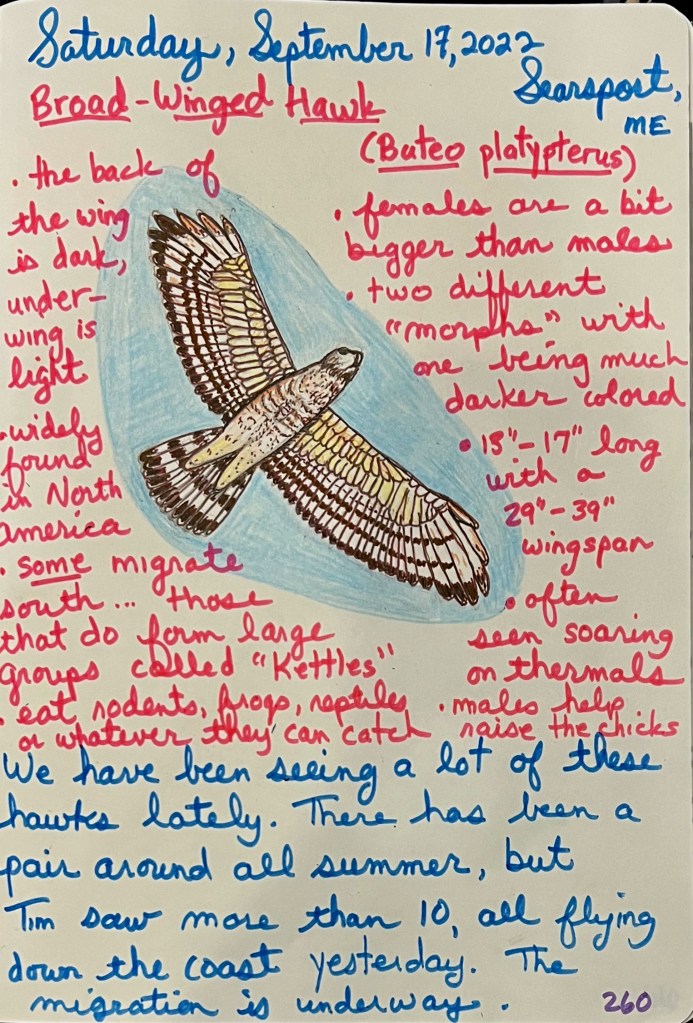 Saturday, September 17, 2022
Searsport,
ME
Broad-Winged Hawk
(Buteo platypterus)
• the back of
the wing
is dark,
under-
wing is
light
• widely
found
in North
america
• some migrate
south... those
that do form large
groups called "Kettles"
• eat rodents, frogs, reptiles
or whatever they can catch
• females are a bit
bigger than males
• two different
"morphs" with
one being much
darker colored
• 13"-17" long
with a
29"-39"
wingspan
• often
seen soaring
on thermals
• males help
raise the chicks
We have been seeing a lot of these
hawks lately. There has been a
pair around all summer, but
Tim saw more than 10, all flying
down the coast yesterday. The
migration is underway.
260